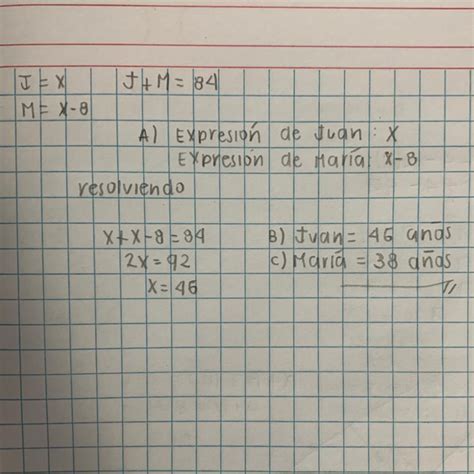 J = x J + M = 84
M = x - 8
A) Expresión de Juan : x
Expresión de María: x - 8
resolviendo
x + x - 8 = 84 B) Juan = 46 años
2x = 92 C) María = 38 años
x = 46